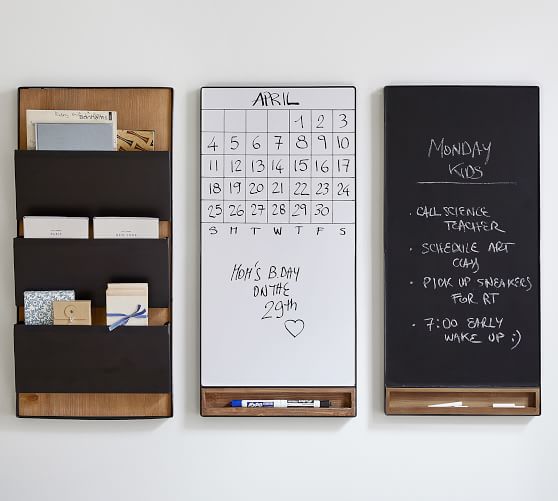 Bonhams
PARIS
NEW YORK
APRIL
1 2 3
4 5 6 7 8 9 10
11 12 13 14 15 16 17
18 19 20 21 22 23 24
25 26 27 28 29 30
S M T W T F S
MOM'S B.DAY
ON THE
29th
MONDAY
KIDS
• CALL SCIENCE
TEACHER
• SCHEDULE ART
CLASS
• PICK UP SNEAKERS
FOR RT
• 7:00 EARLY
WAKE UP :)